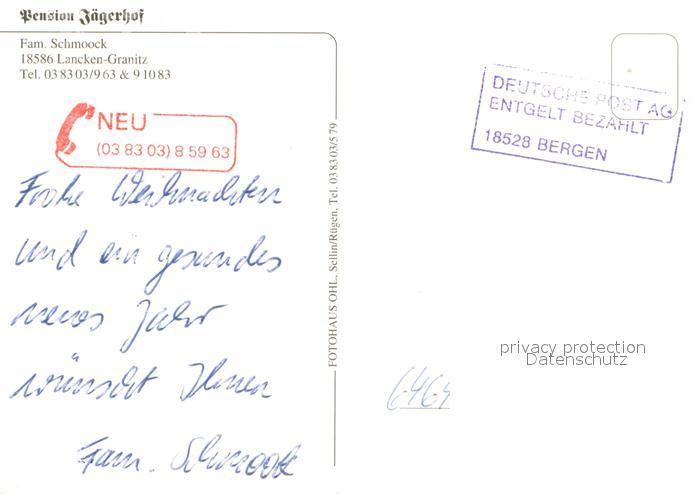 Pension Jägerhof
Fam. Schmoock
18586 Lancken-Granitz
Tel. 03 83 03/9 63 & 9 10 83
NEU
(03 83 03) 8 59 63
Frohe Weihnachten
und ein gesundes
neues Jahr
wünscht Ihnen
Fam. Schmoock
FOTOHAUS OHL, Sellin/Rügen, Tel. 03 83 03/5 79
DEUTSCHE POST AG
ENTGELT BEZAHLT
18528 BERGEN
privacy protection
Datenschutz
6464